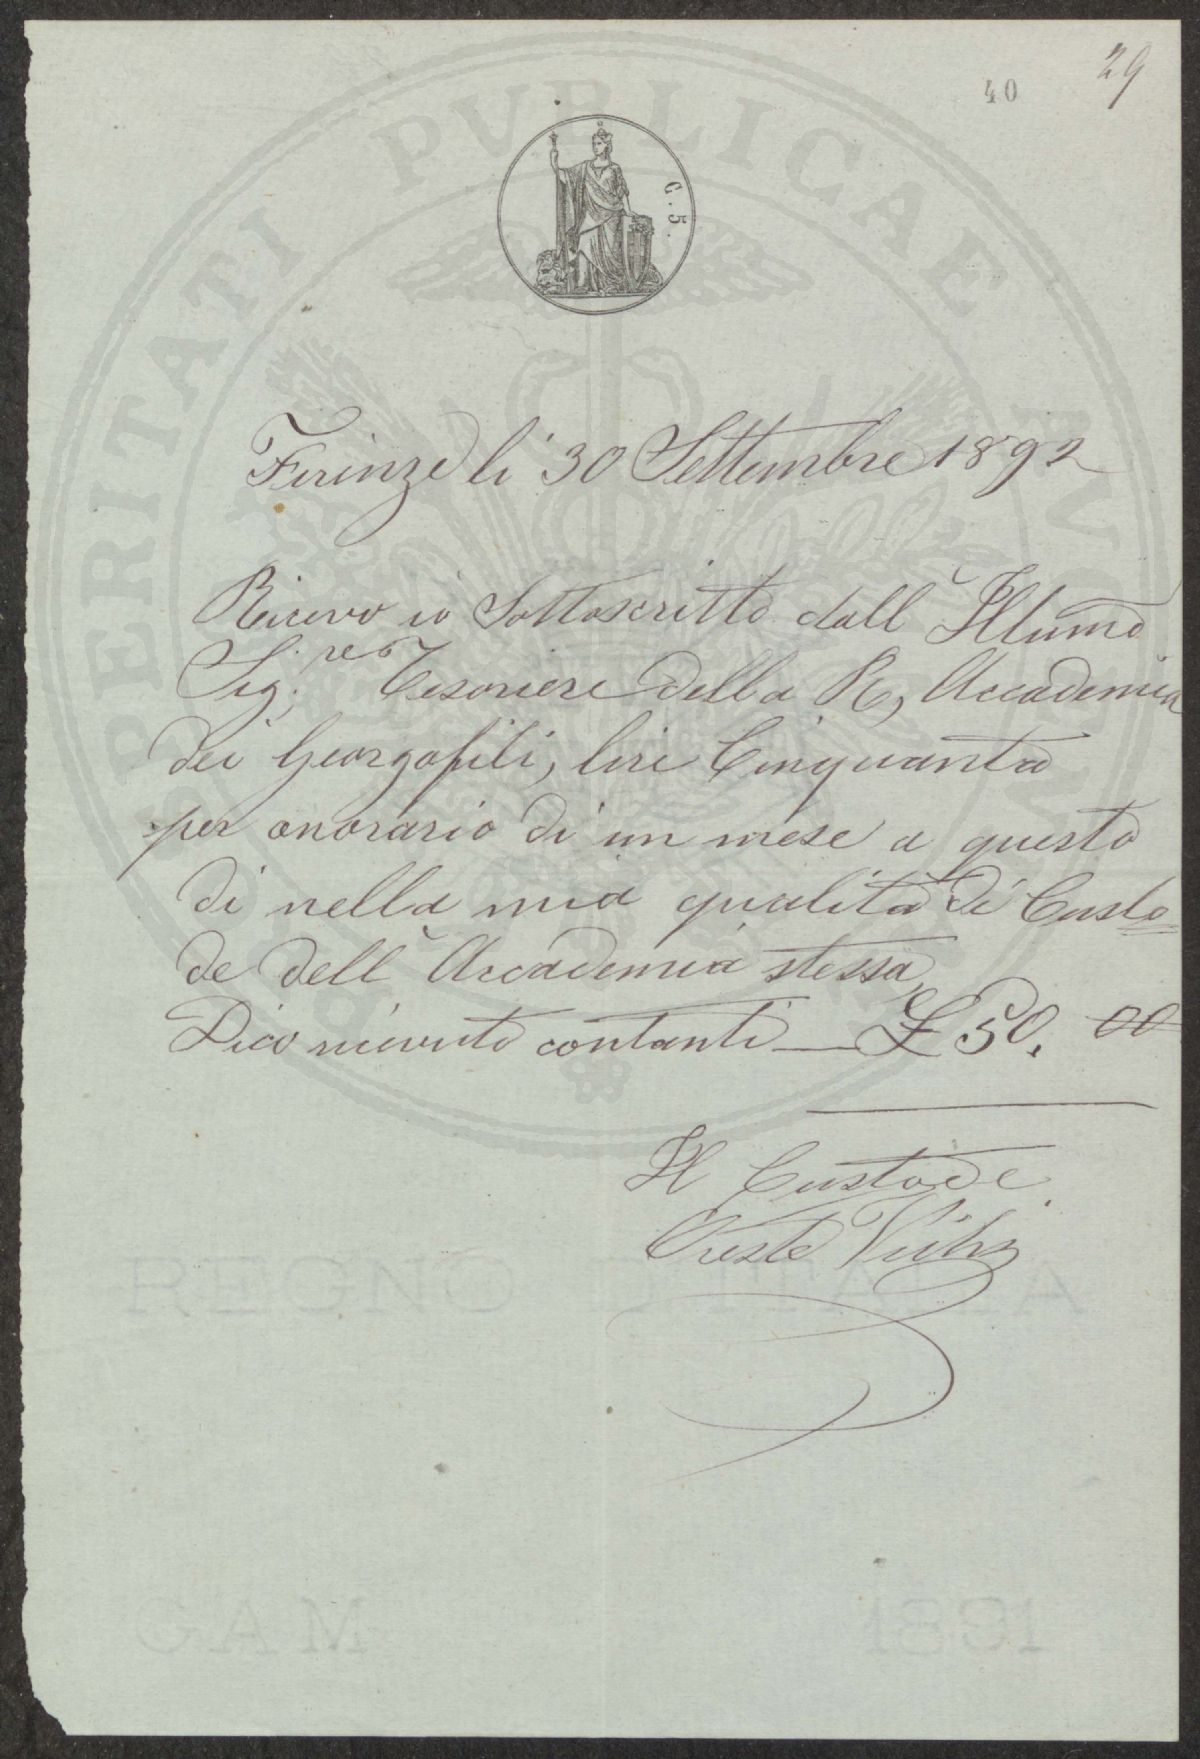 29
40
C. 5.
Firenze li 30 Settembre 1892
Ricevo io Sottoscritto dall' Illumo
Sig.re Tesoriere della R, Accademia
dei Georgofili, lire Cinquanta
per onorario di un mese a questo
di nella mia qualità di Custo
de dell' Accademia stessa,
Dico ricevuto contanti — £ 50. 00
Il Custode
Oreste
PROSPERITATI PVBLICAE AVGENDAE
REGNO D'ITALIA
GAM 1891